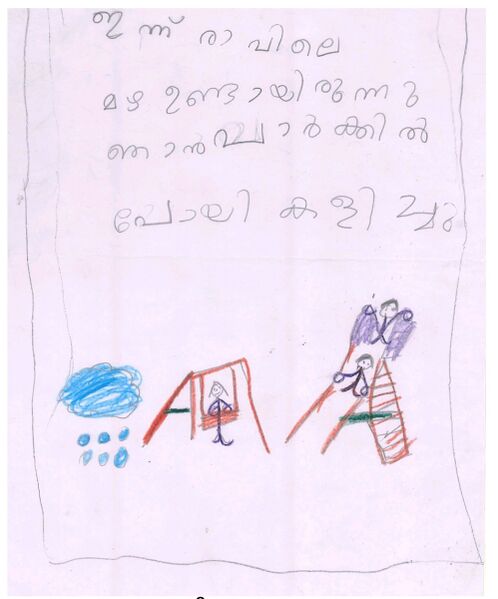 ഇന്ന് രാവിലെ
മഴ ഉണ്ടായിരുന്നു
ഞാൻ പാർക്കിൽ
പോയി കളിച്ചു